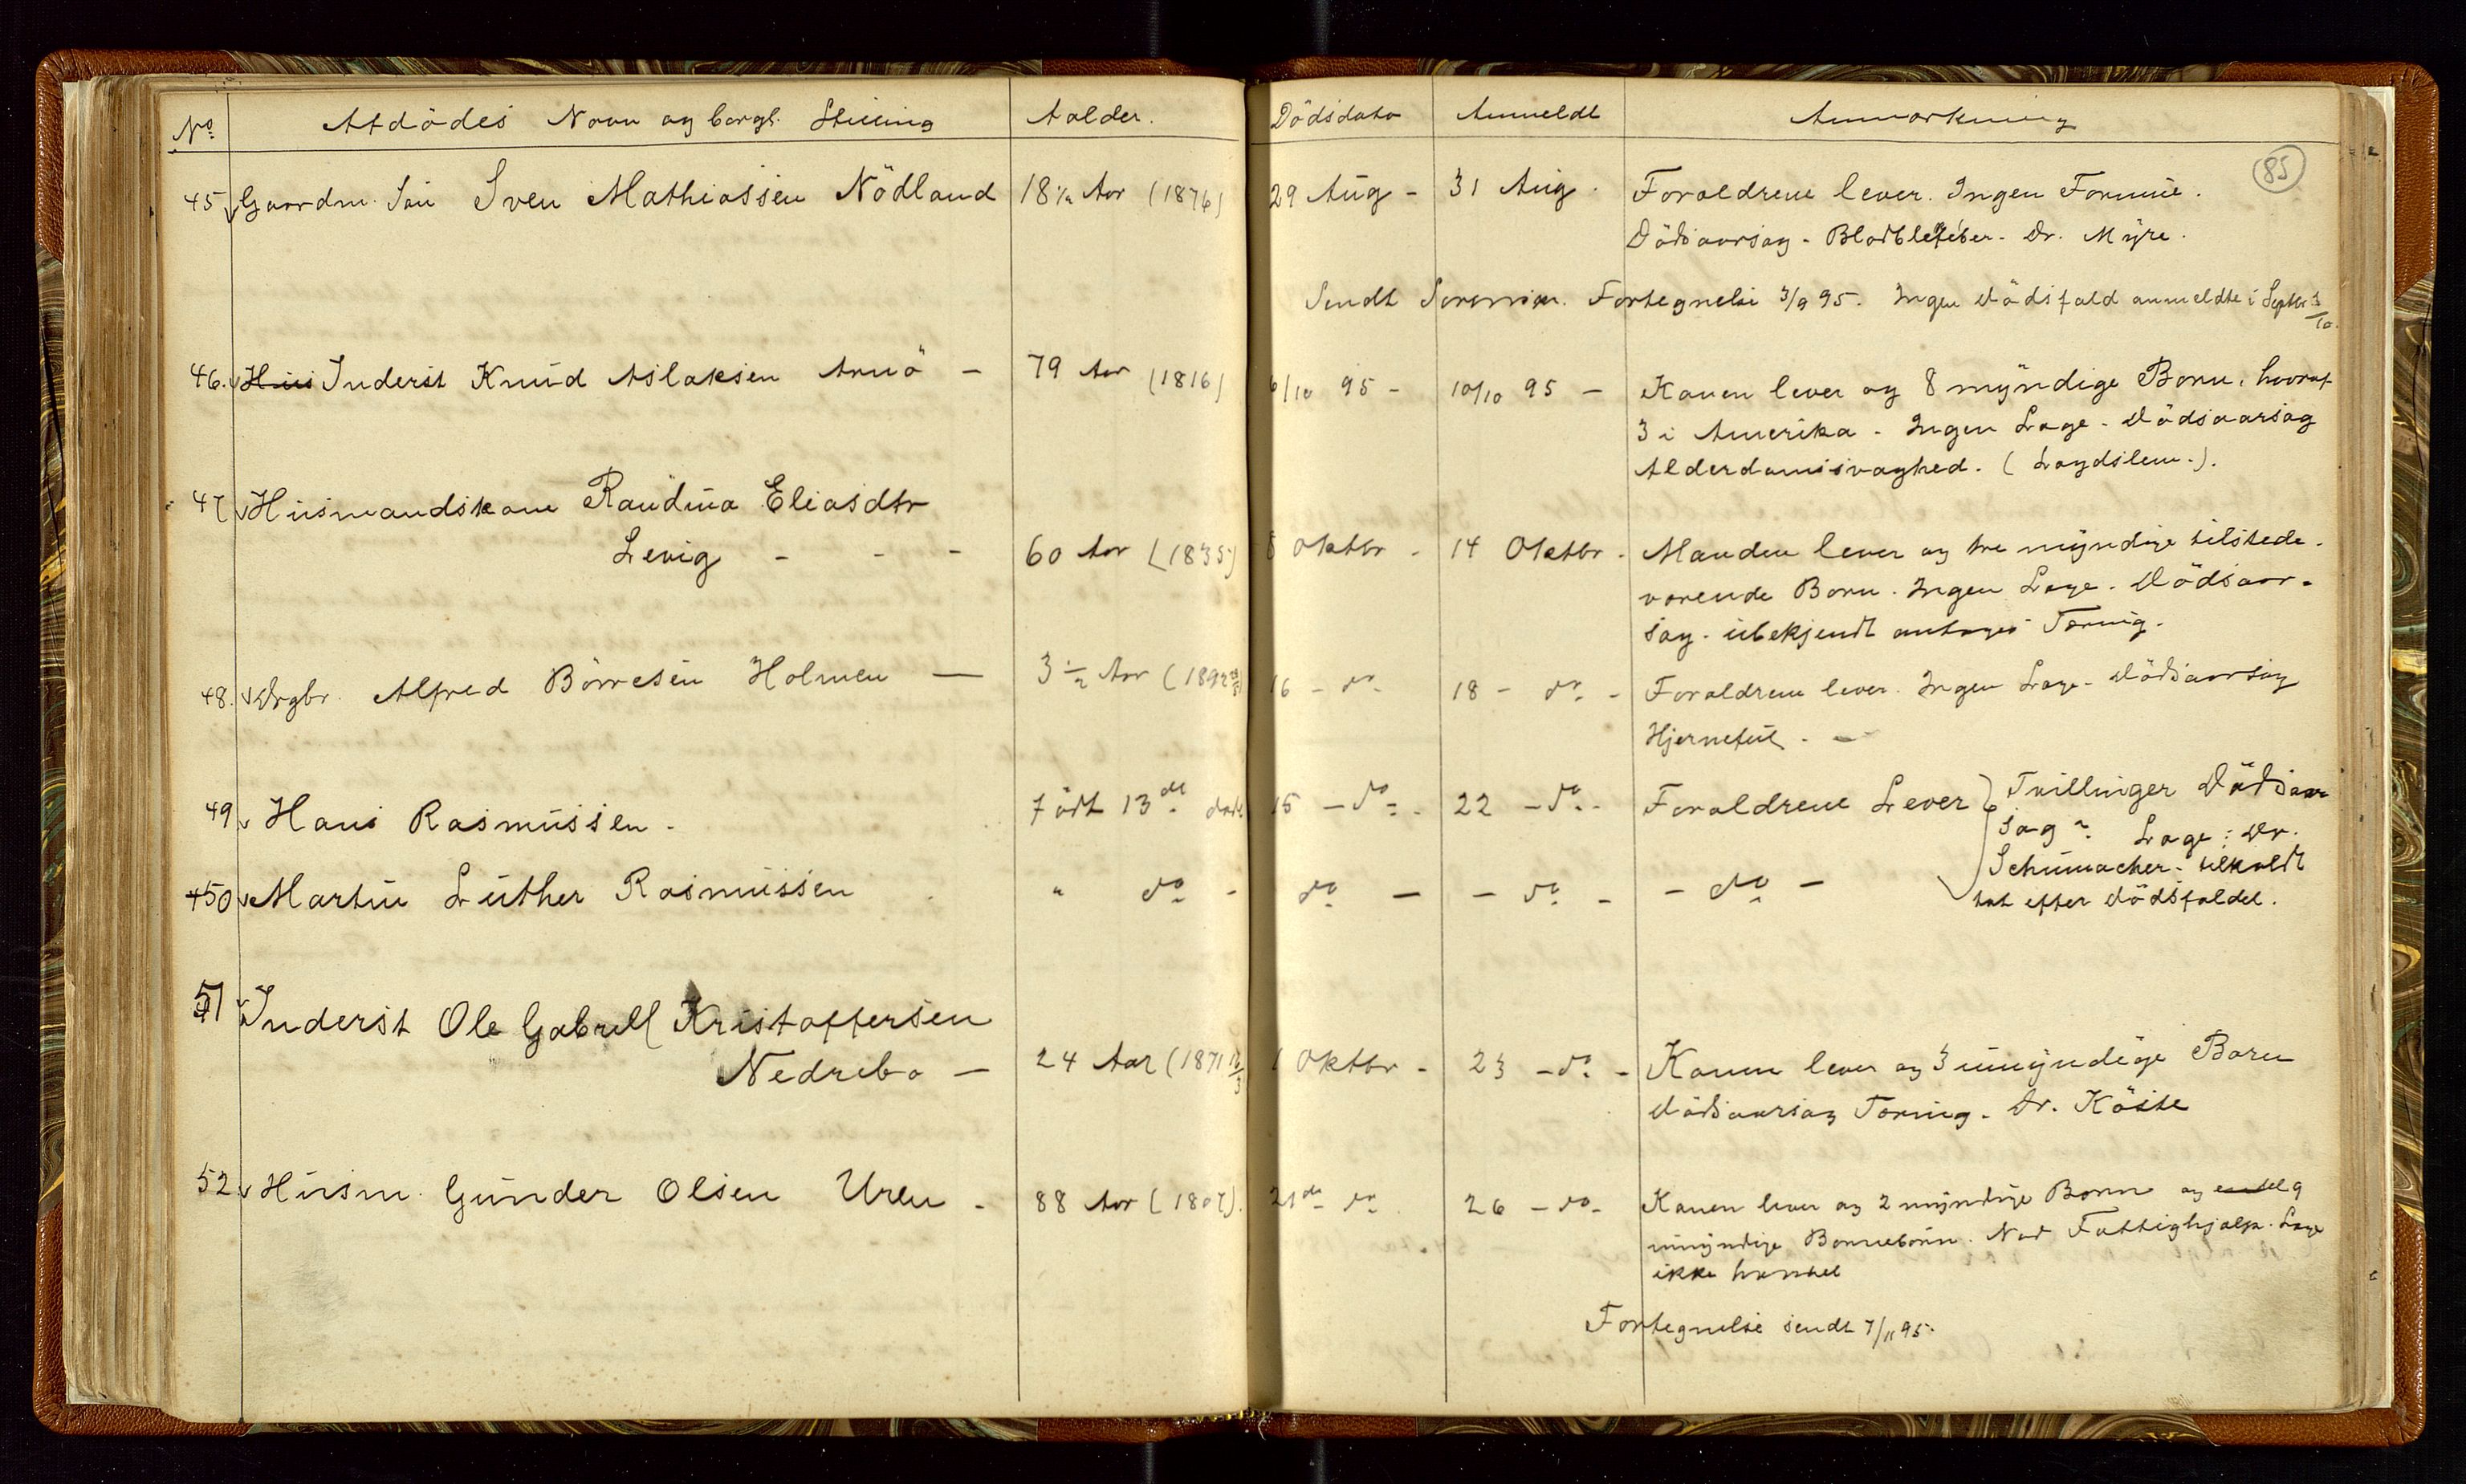 No Afdödes Navn og borgl. Stilling Aalder. Dödsdato Anmeldt Anmærkning
85
45 Gaardm. Sön Sven Mathiassen Nödland 18 1/2 Aar (1876) 29 Aug - 31 Aug. Forældrene lever. Ingen Formue.
Dödsaarsag - Dr. Myre.
Sendt Sorenskr. Fortegnelse 3/9 95. Ingen Dödsfald anmeldte i Septbr 1/10.
46. Hus Inderst Knud Aslaksen Arnö - 79 Aar (1816) 6/10 95 - 10/10 95 - Konen lever og 8 myndige Born, hvoraf
3 i Amerika - Ingen Læge - Dödsaarsag
Alderdomssvaghed. (Lægdslem.).
47 Husmandskone Raudina Eliasdtr
Levig - - - 60 Aar (1835) 8 Oktbr - 14 Oktbr - Manden lever og tre myndige tilstede-
værende Born. Ingen Læge. Dödsaar-
sag - ubekjendt antages Tæring.
48. Drgbr. Alfred Börresen Holmen — 3 1/2 Aar (1892 16 - do - 18 - do - Forældrene lever. Ingen Læge - Dödsaarsag
Hjernefeil. -
49 Hans Rasmussen - Födt 13de ds 15 - do - 22 - do - Forældrene Lever } Tvillinger Dödsaar
sag ? Læge: Dr.
Schumacher - tilkaldt
50 Martin Luther Rasmussen " do - do - - do - - do -
tat efter Dödsfaldet.
51 Inderst Ole Gabriel Kristoffersen
Nedrebø - 24 Aar (1871 16/3 1 Oktbr - 23 - do - Konen lever og 3 umyndige Børn
Dödsaarsag Tæring - Dr. Köste
52 Husm. Gunder Olsen Uren - 88 Aar (1807). 21de do 26 - do - Konen lever og 2 myndige Born og endel 9
umyndige Bornebörn. Nød Fattighjælp. Læge
ikke hentet
Fortegnelse sendt 7/11 95.